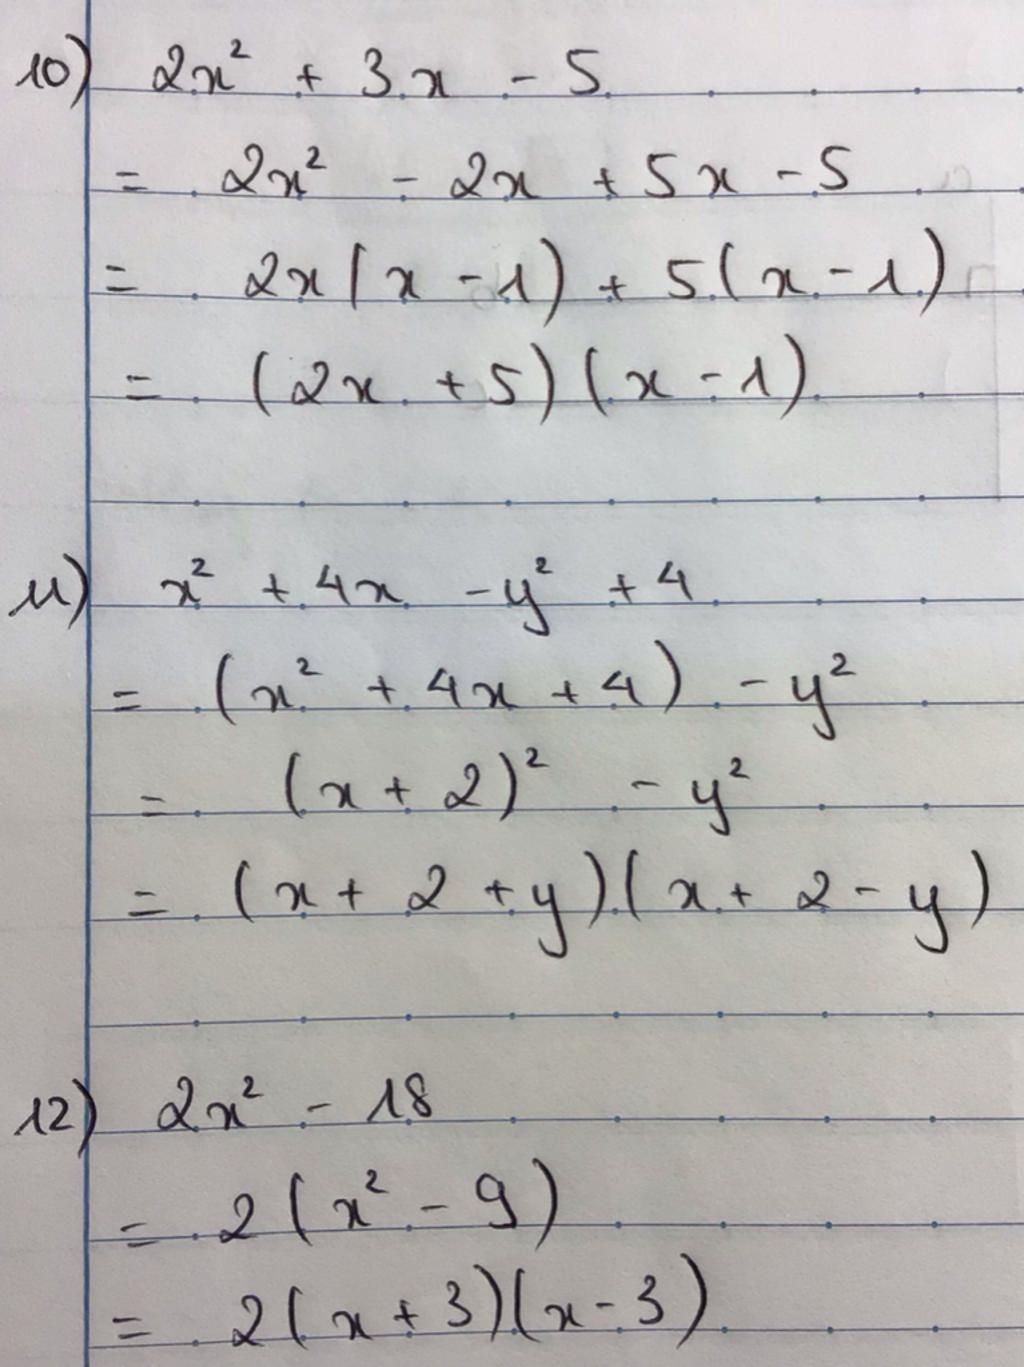 10) 2x² + 3x - 5
= 2x² - 2x + 5x - 5
= 2x(x - 1) + 5(x - 1)
= (2x + 5)(x - 1)
11) x² + 4x - y² + 4
= (x² + 4x + 4) - y²
= (x + 2)² - y²
= (x + 2 + y)(x + 2 - y)
12) 2x² - 18
= 2(x² - 9)
= 2(x + 3)(x - 3)